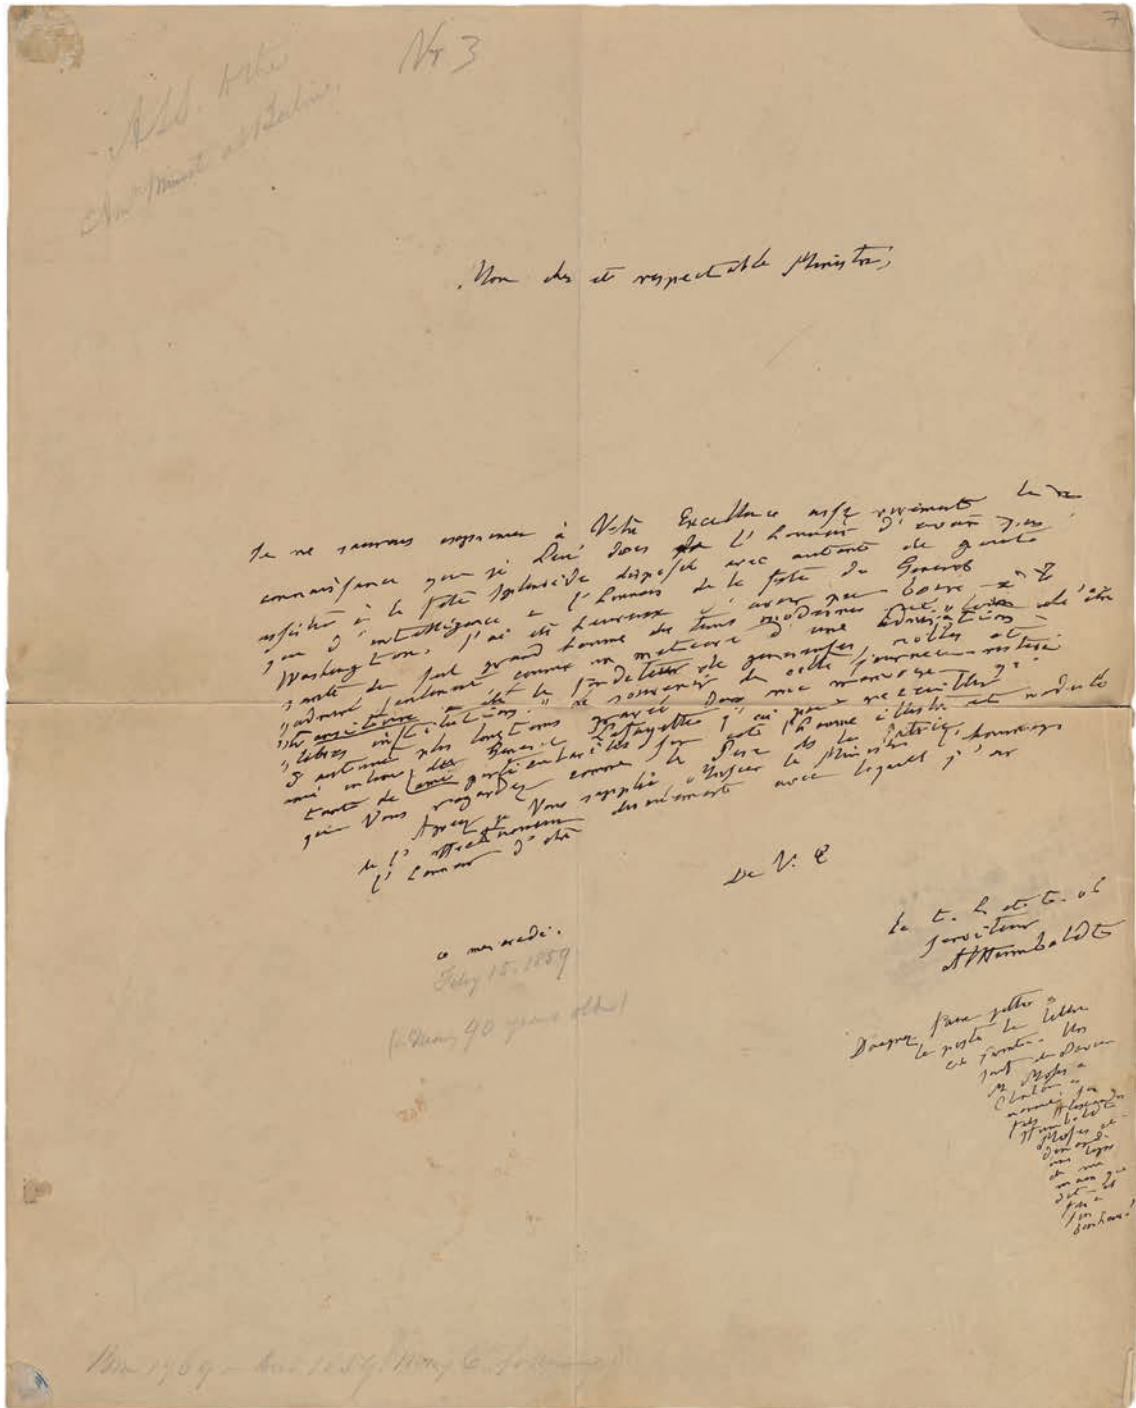 7
No 3
A.L.S. to the
Am. Minist at Berlin,
Mon cher et respectable Ministre,
Je ne saurais exprimer à Votre Excellence assez vivement la re
connaissance que je Lui dois l'honneur d'avoir pu
assister à la fete splendide disposée avec autant de gouté
que d'intelligence en l'honneur de la fete du General
Washington. J'ai été heureux d'avoir pu boire à la
santé du seul grand homme des tems modernes qui
admiré seulement comme un meteore d'une admiration
transitoire a été le fondateur de genereuses, nobles et
libres institutions." Le souvenir de cette journée restera
d'autant plus longtems gravé dans ma memoire
ami intime du General Lafayette j'ai pu recueillir
tant de particularités sur cet homme illustre et modeste
que Vous regardez comme le Pere de la Patrie.
Agreez je Vous supplie Monsieur le Ministre, l'hommage
de l' devouement avec lequel j'ai
l'honneur d'etre
De V. E
le t. h. et t. ob
serviteur
AvHumboldt
ce mercredi.
Feby 15. 1859
(90 years old)
Daignez faire jetter à
la poste la lettre
ci jointe. Un
M. Moses a
nommé son
fils Alexandre
Humboldt
Moses et
demande
une ligne
de ma
main que
dit-il
fera
son
bonheur!
Born 1769 – died 1859.